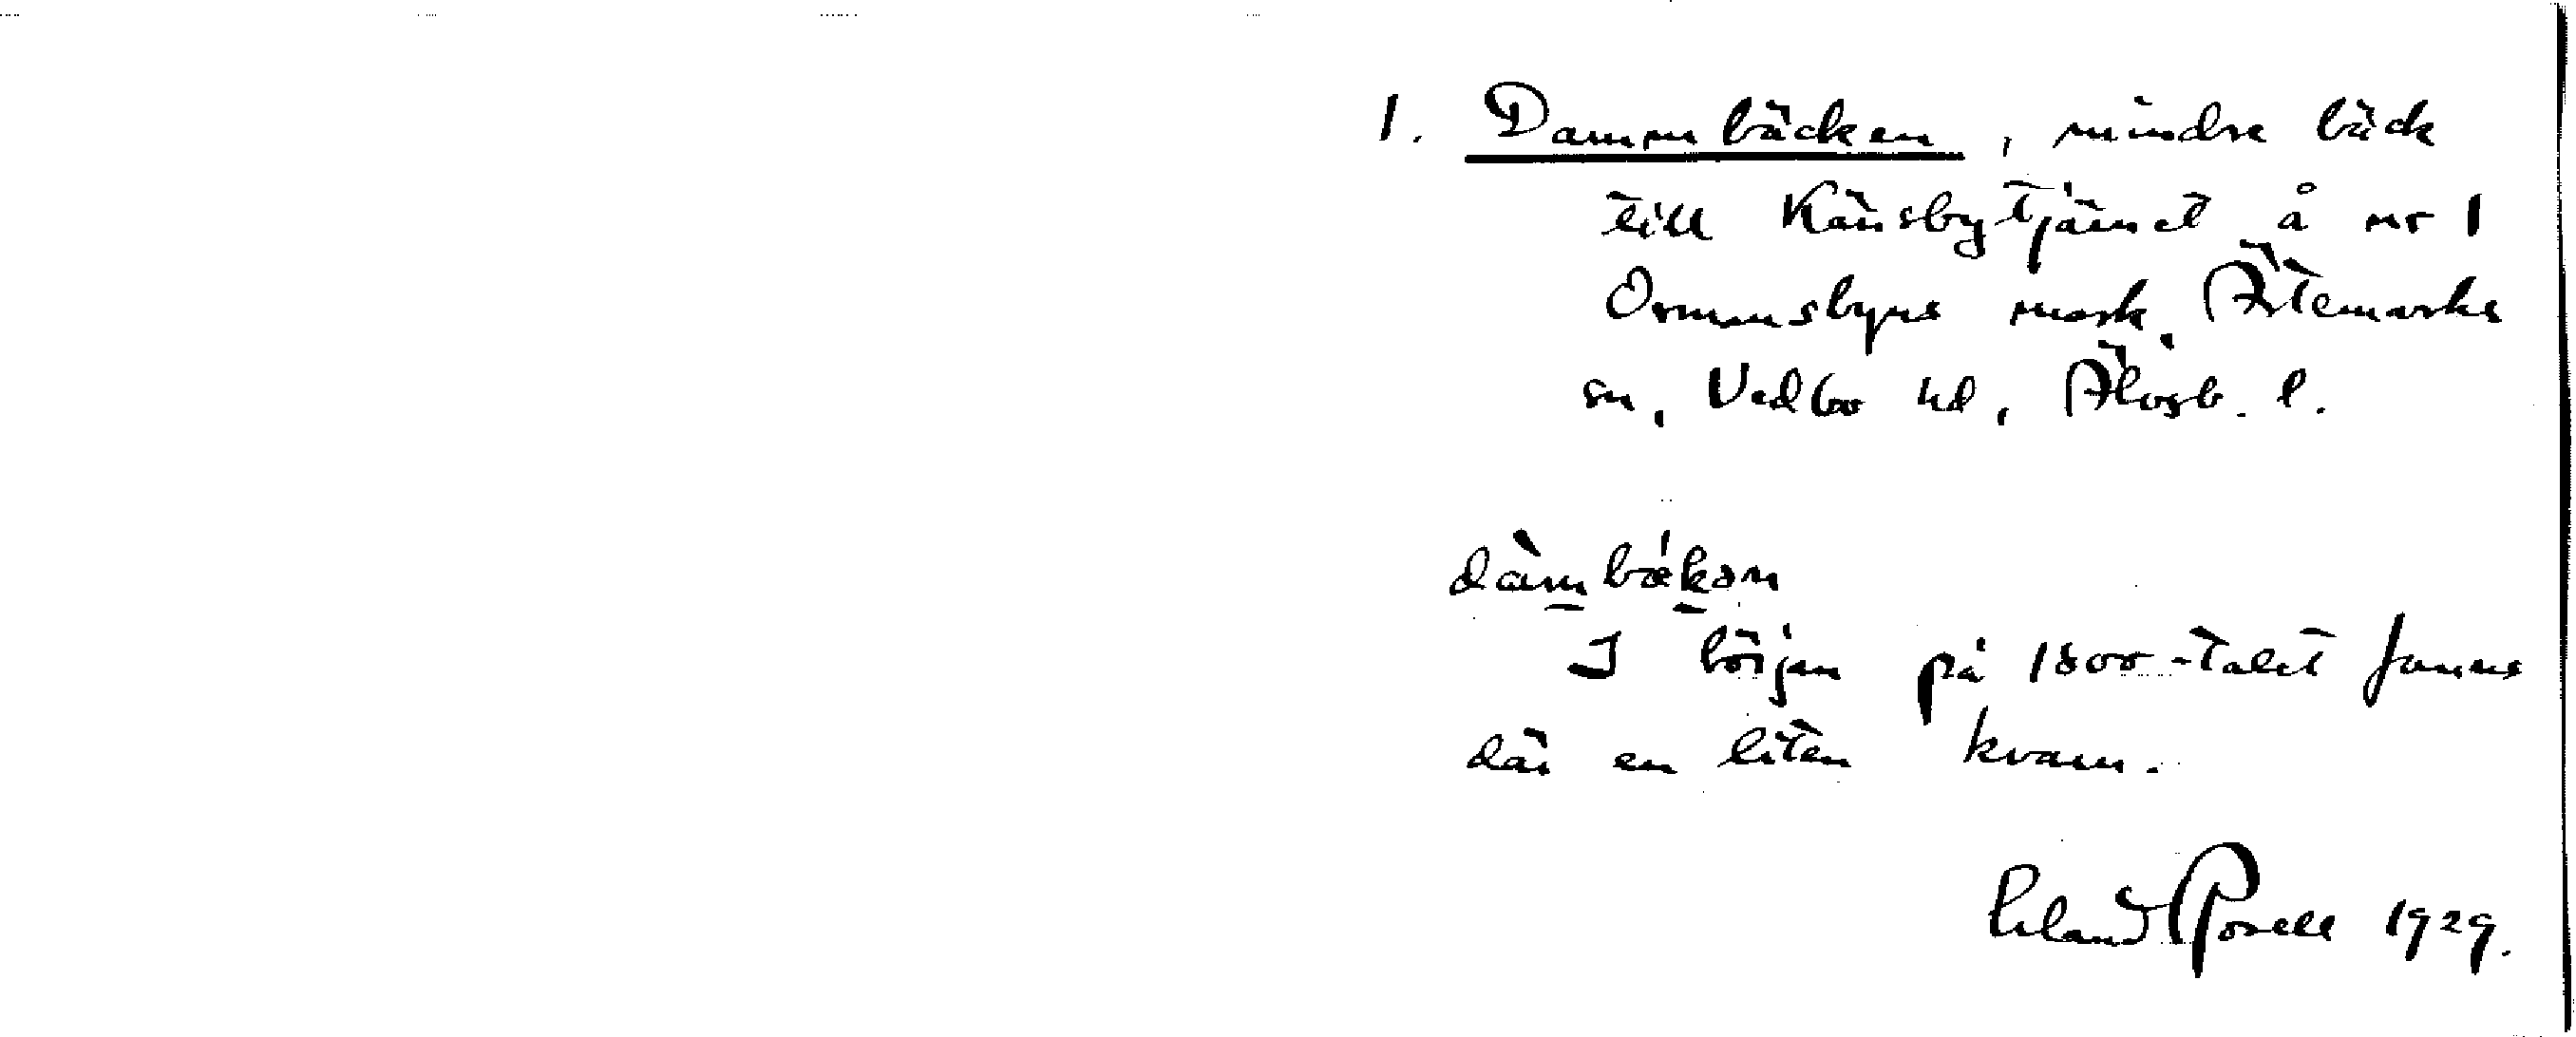 1. Dammbäcken, mindre bäck
till Känsbytjärnet å nr 1
Ormansbyns mark, Ärtemarks
sn, Vedbo hd, Älvsb. l.
dàmbǽkən
I början på 1800-talet fanns
där en liten kvarn.
Erland Rosell 1929.